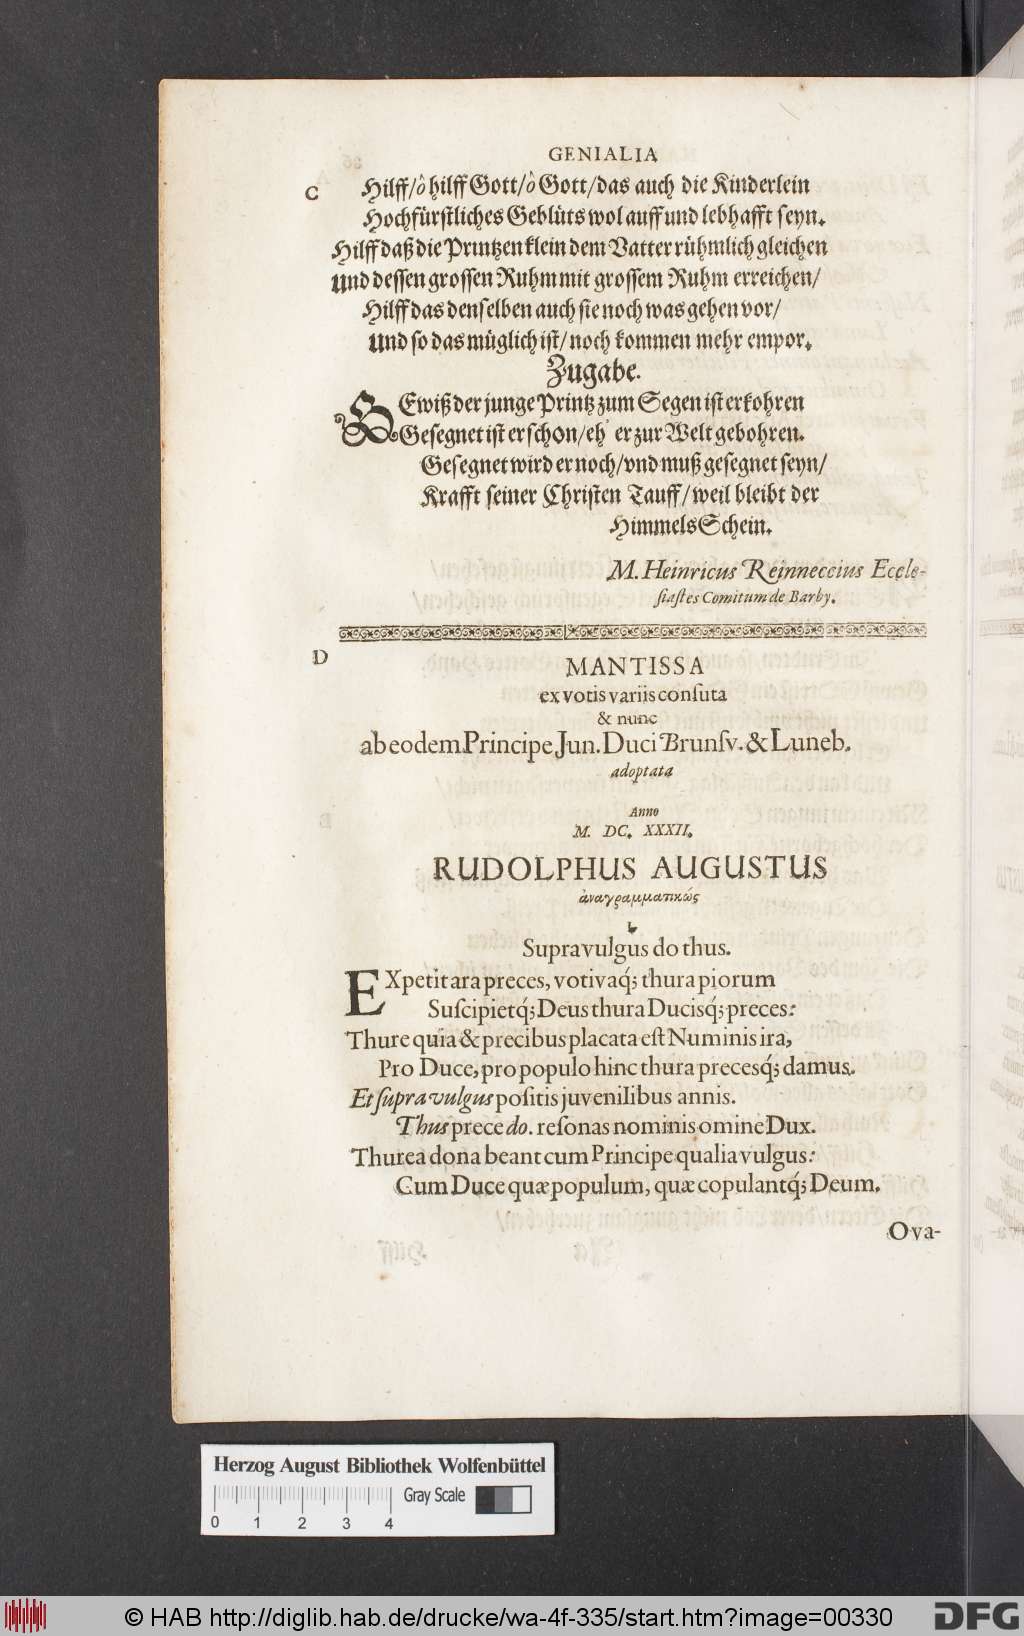 GENIALIA
C
Hilff/ô hilff Gott/ô Gott/das auch die Kinderlein
Hochfürstliches Geblüts wol auff und lebhafft seyn.
Hilff daß die Printzen klein dem Vatter rühmlich gleichen
Und dessen grossen Ruhm mit grossem Ruhm erreichen/
Hilff das denselben auch sie noch was gehen vor/
Und so das müglich ist/noch kommen mehr empor.
Zugabe.
GEwiß der junge Printz zum Segen ist erkohren
Gesegnet ist er schon/eh' er zur Welt gebohren.
Gesegnet wird er noch/vnd muß gesegnet seyn/
Krafft seiner Christen Tauff/weil bleibt der
Himmels Schein.
M. Heinricus Reinneccius Eccle-
siastes Comitum de Barby.
D
MANTISSA
ex votis variis conſuta
& nunc
ab eodem Principe Jun. Duci Brunſv. & Luneb.
adoptata
Anno
M. DC. XXXII.
RUDOLPHUS AUGUSTUS
ἀναγραμματικώς
Supra vulgus do thus.
EXpetit ara preces, votivaq́; thura piorum
Suſcipietq́; Deus thura Ducisq́; preces:
Thure quia & precibus placata eſt Numinis ira,
Pro Duce, pro populo hinc thura precesq́; damus.
Et ſupra vulgus poſitis juvenilibus annis.
Thus prece do. reſonas nominis omine Dux.
Thurea dona beant cum Principe qualia vulgus:
Cum Duce quæ populum, quæ copulantq́; Deum.
Ova-
Herzog August Bibliothek Wolfenbüttel
Gray Scale
0 1 2 3 4
© HAB http://diglib.hab.de/drucke/wa-4f-335/start.htm?image=00330
DFG